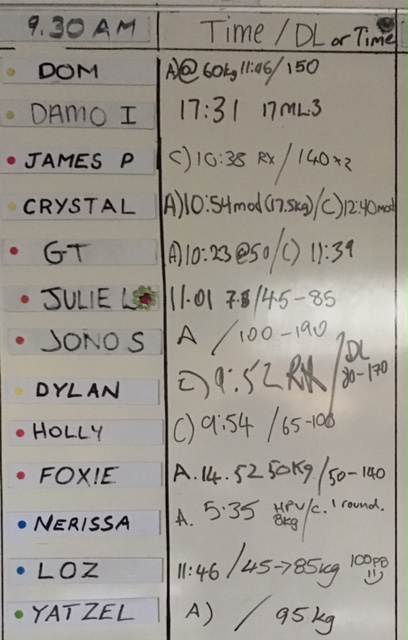 9.30 AM Time / DL or Time
DOM A)@ 60kg 11:06/150
DAMO I 17:31 17ML3
JAMES P C) 10:38 RX / 140x2
CRYSTAL A)10:54mod(17.5kg)/C)12:40mod
GT A)10:23@50/C) 11:39
JULIE L 11.01 7.8/45-85
JONO S A /100-190
DYLAN C) 9:52 RX / DL 80-170
HOLLY C) 9:54 /65-100
FOXIE A.14.52 50kg/50-140
NERISSA A. 5:35 HPU/C. 1 round. 8kg
LOZ 11:46 /45→85kg 100PB
YATZEL A) / 95kg